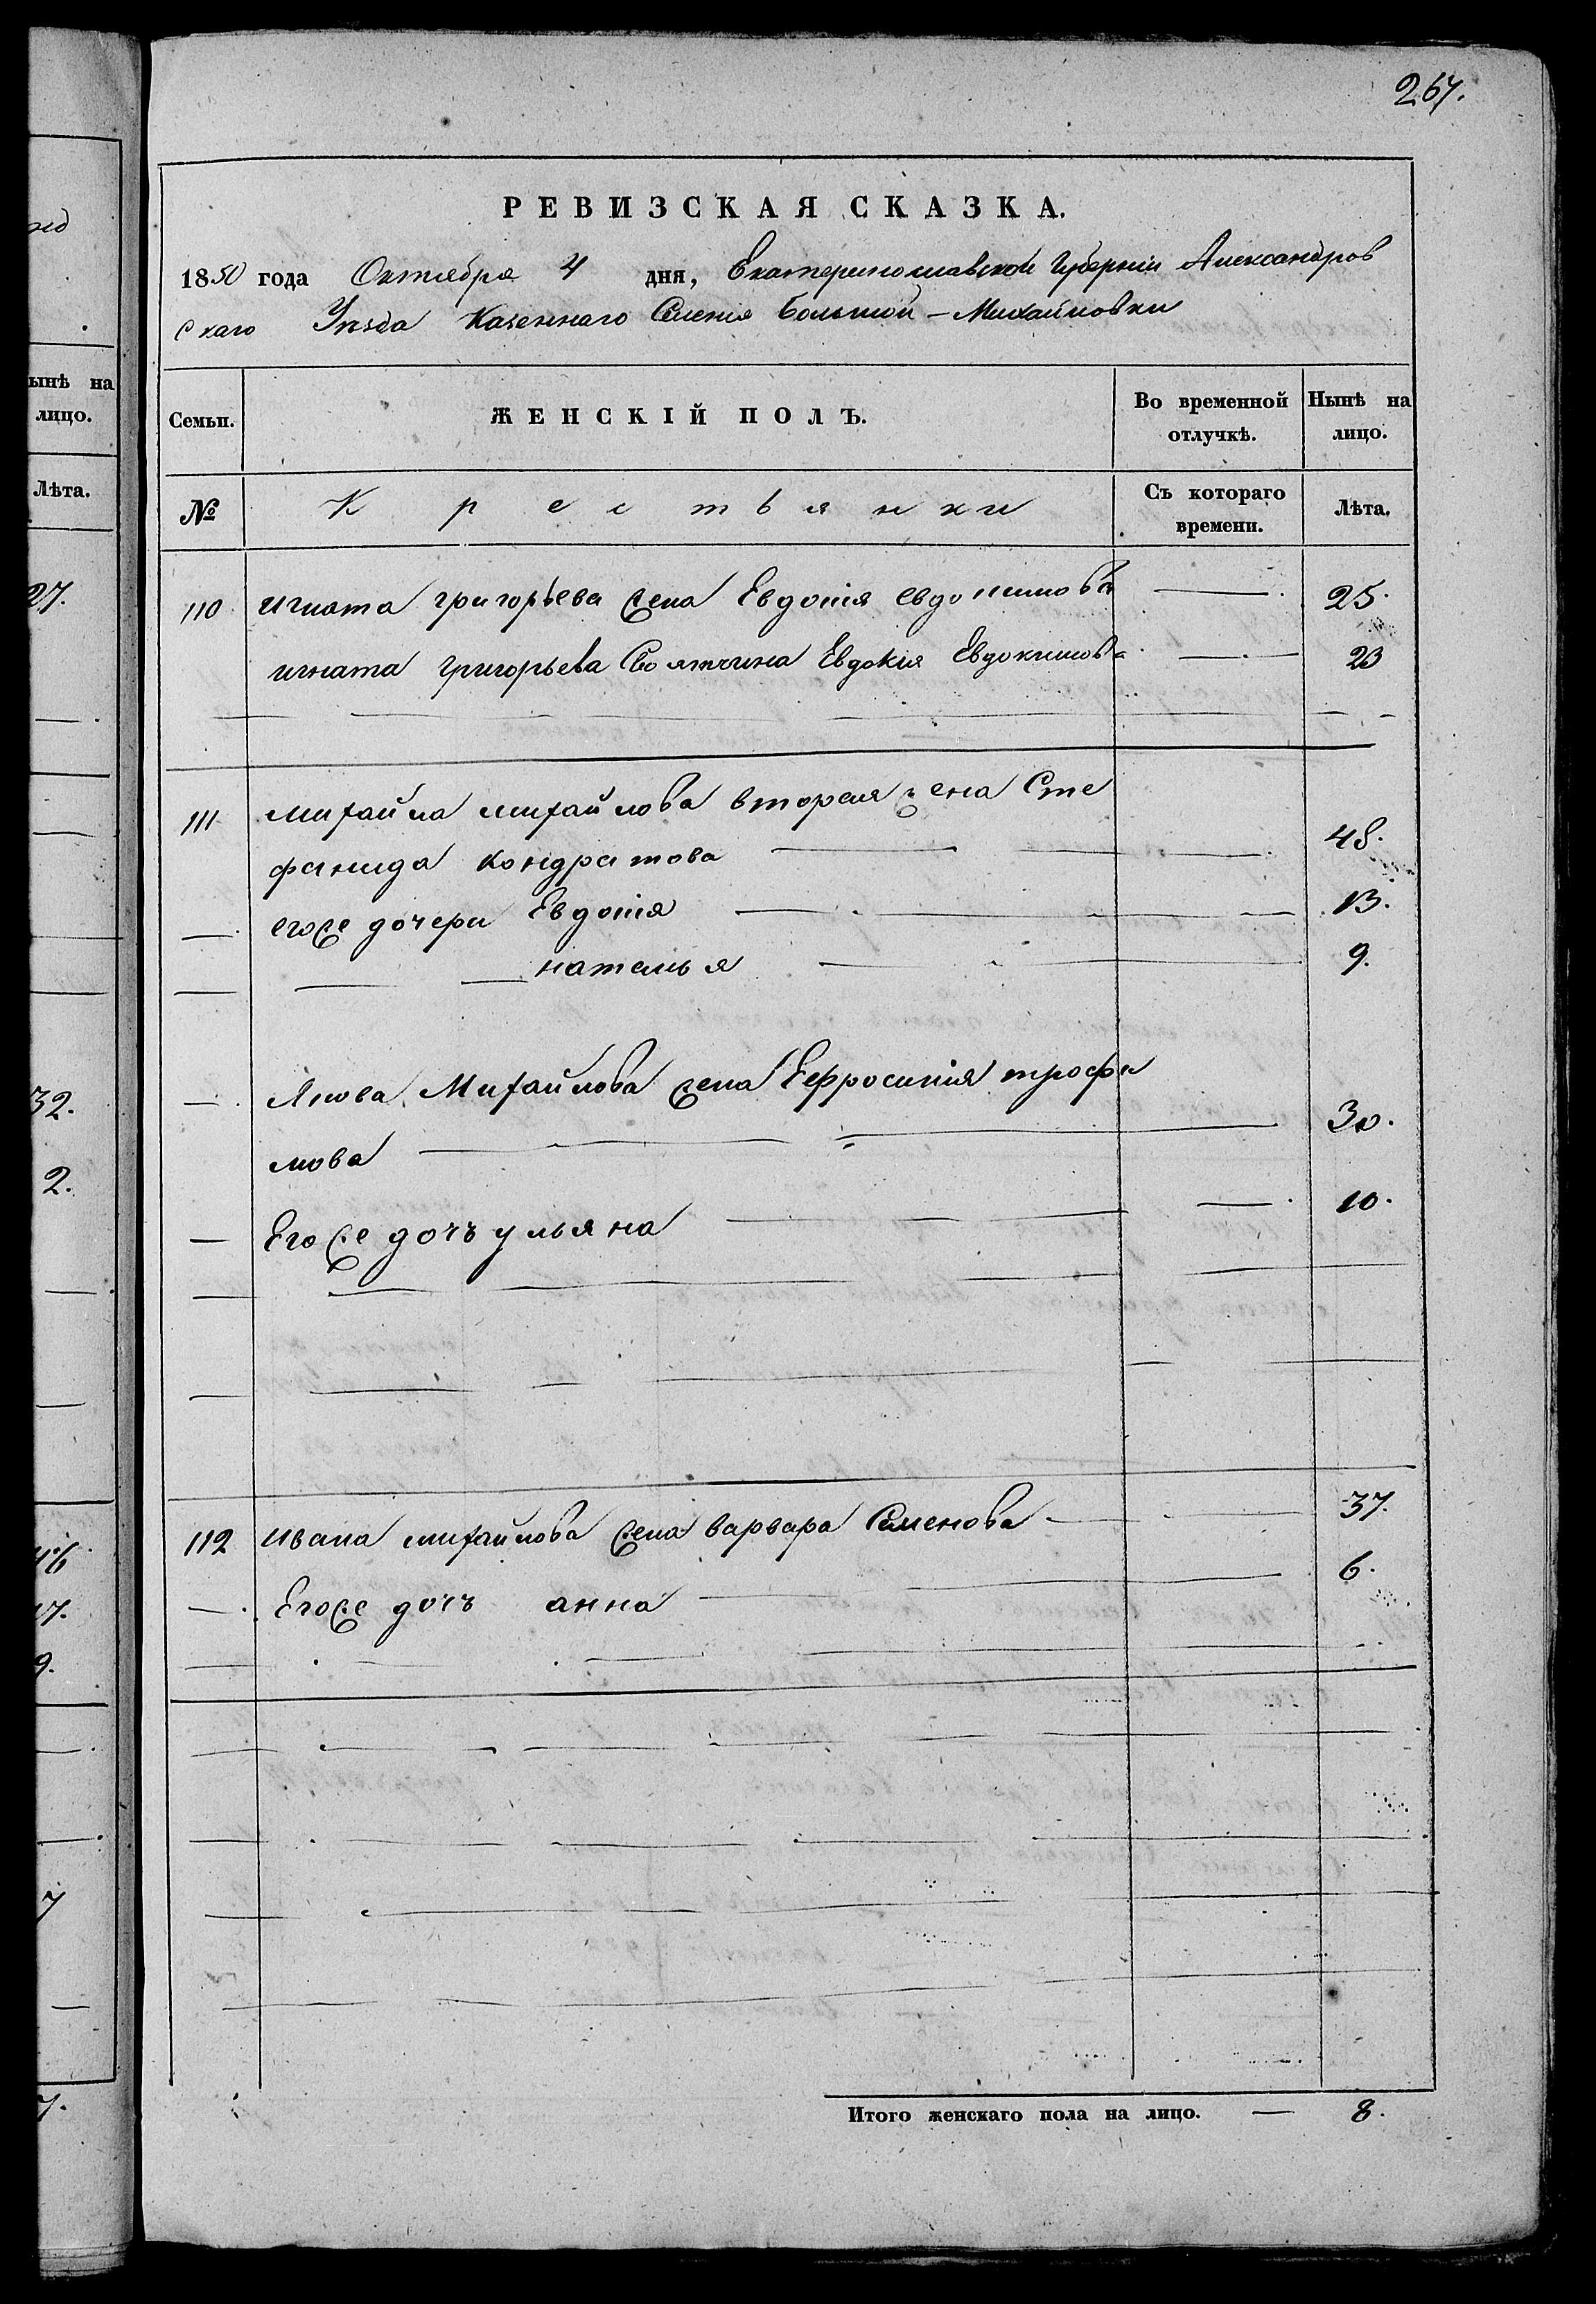 267.
РЕВИЗСКАЯ СКАЗКА.
1850 года Октября 4 дня, Екатеринославской Губерніи Александров
скаго Уѣзда Казеннаго Селенія Большой-Михайловки
ынѣ на лицо.
Лѣта.
27.
32.
2.
46
17.
9.
7
7.
Семьи. ЖЕНСКІЙ ПОЛЪ. Во временной отлучкѣ. Нынѣ на лицо.
№ Крестьянки Съ котораго времени. Лѣта.
110 игната григорьева жена Евдокія евдокимова — 25.
игната григорьева Своятчина Евдокия Евдокимова — 23
111 михайла михайлова вторая жена Сте
фанида кондратова — 48.
— егоже дочери Евдокія — 13.
— наталья — 9.
— Якова Михайлова жена Ефросинія трофи
мова — 30.
— Егоже дочъ ульяна — 10.
112 ивана михайлова жена варвара Семенова — 37.
— Егоже дочъ анна — 6.
Итого женскаго пола на лицо. — 8.